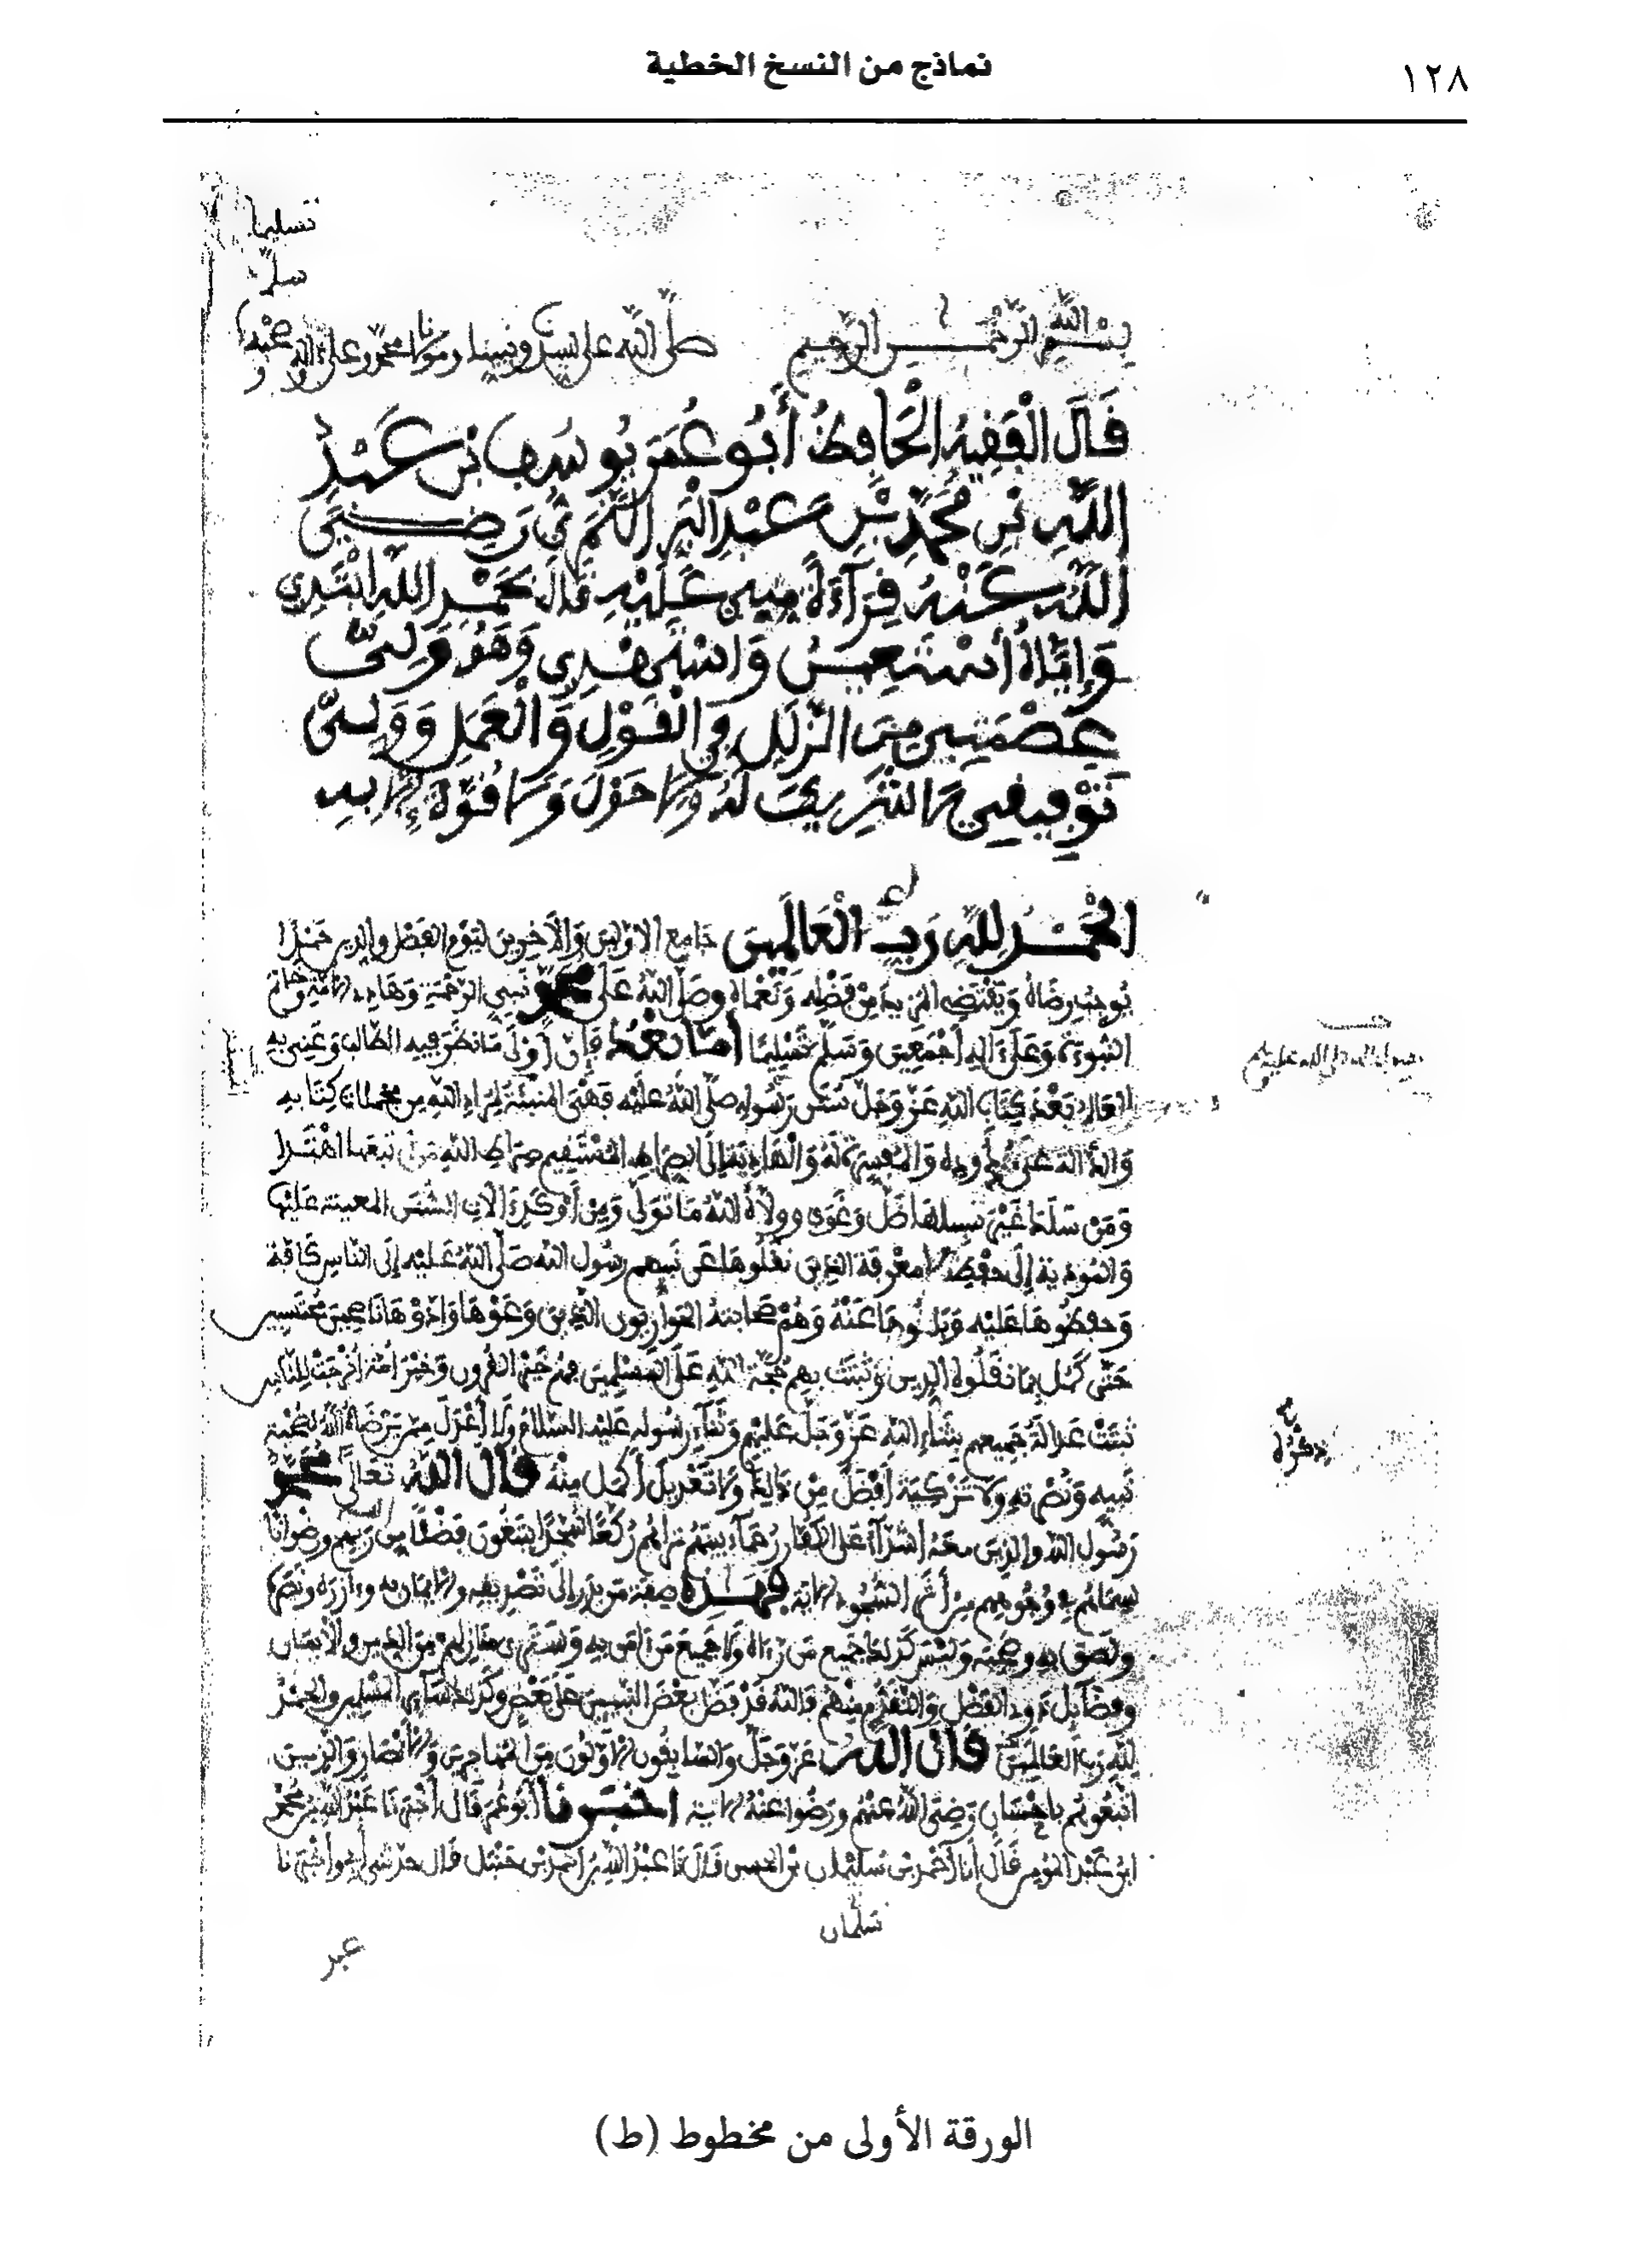 ١٢٨
نماذج من النسخ الخطية
تسليما
بسم الله الرحمن الرحيم صلى الله على سيدنا ونبينا ومولانا محمد وعلى اله وصحبه
قَالَ الْفَقِيهُ الْحَافِظُ أَبُو عُمَرَ يُوسُفُ بْنُ عَبْدِ
اللَّهِ بْنِ مُحَمَّدِ بْنِ عَبْدِ الْبَرِّ النَّمَرِيُّ رَضِيَ
اللَّهُ عَنْهُ قِرَآءَةً مِنِّي عَلَيْهِ قَالَ بِحَمْدِ اللَّهِ ابْتَدِي
وَإِيَّاهُ أَسْتَعِينُ وَاسْتَهْدِي وَهُوَ وَلِيُّ
عِصْمَتِي مِنَ الزَّلَلِ فِي الْقَوْلِ وَالْعَمَلِ وَوَلِيُّ
تَوْفِيقِي لَا شَرِيكَ لَهُ وَلَا حَوْلَ وَلَا قُوَّةَ إِلَّا بِهِ
الْحَمْدُ لِلَّهِ رَبِّ الْعَالَمِينَ جَامِعِ الاوّلين وَالآخِرِينَ لِيَوْمِ الفَصْلِ والدين حَمْدًا
يُوجِبُ رِضَاهُ وَيَقْتَضِي المزيد مِنْ فَضْلِهِ وَنُعْمَاهُ وصَلَّى اللهُ عَلَى محمد نَبِيِّ الرَّحْمَةِ وَهَادِي الامة وخاتم
النبوة وَعَلَى آلِهِ أَجْمَعِينَ وَسَلَّمَ تَسْلِيمًا أَمَّا بَعْدُ فَإِنَّ أَوْلَى مَا نَظَرَ فِيهِ الطَّالِبُ وَعُنِيَ بِهِ
العَالِمُ بَعْدَ كِتَابِ اللهِ عَزَّ وَجَلَّ سُنَنُ رَسُولِهِ صَلَّى اللهُ عَلَيْهِ فَهْيَ المُبَيِّنَةُ لِمُرَادِ اللهِ مِن مجملات كِتَابِهِ
وَالدَّالَّةُ عَلَى حُدُودِهِ وَالمُفَسِّرَةُ لَهُ وَالْهَادِيَةُ إِلَى الصراط المُسْتَقِيم صِرَاطِ اللهِ مَنِ اتبعها اهْتَدَا
وَمَنْ سَلَكَ غَيْرَ سبيلها ضَلَّ وَغَوَى وولاه اللهُ مَا تَوَلَّى وَمِنْ أَوْكَدِ آلاتِ السُّنَنِ المعينة عَلَيْهَا
وَالْمُؤَدِّيَةِ إِلَى حِفْظِهَا مَعْرِفَةُ الذِينَ نَقَلُوهَا عَن نبيهم رسُولِ الله صَلَّى اللهُ عَلَيْهِ إِلَى النَّاسِ كَافَّةً
وَحفظُوهَا عَلَيْهِ وَبَلَّغُوهَا عَنْهُ وَهُمْ صَحَابَتُهُ الحواريُّونَ الَّذِينَ وَعَوْهَا وَأَدَّوْهَا نَاصِحِينَ مُحْتَسِبِينَ
حَتَّى كَمُلَ بِمَا نَقَلُوهُ الدِّينُ وَثَبَتَتْ بِهِمْ حُجَّةُ اللهِ عَلَى المُسْلِمِينَ فهم خَيْرُ القُرُونِ وَخَيْرُ أُمَّةٍ أُخْرِجَتْ لِلنَّاسِ
ثَبَتَتْ عَدَالَةُ جَمِيعِهِم بِثَنَاءِ اللهِ عَزَّ وَجَلَّ عَلَيْهِمْ وَثَنَاءِ رَسُولِهِ عَلَيْهِ السَّلَامُ وَلَا أَعْدَلَ مِمَّن ارْتَضَاهُ اللهُ لِصُحْبَةِ
نَبِيِّهِ وَنُصْرَتِهِ وَلَا تَزْكِيَةَ أَفْضَلُ مِنْ ذَلِكَ وَلَا تَعْدِيلَ أَكْمَلُ مِنْهُ قَالَ اللهُ تَعَالَى مُحَمَّدٌ
رَسُولُ اللهِ والذِينَ مَعَهُ أَشِدَّآءُ عَلَى الكُفَّارِ رُحَمَآءُ بينهم تراهم رُكَّعًا سُجَّدًا يَبْتَغُونَ فَضْلًا مِن رَبهم ورضوانا
سِيمَاهُمْ فِي وُجُوهِهِم مِنْ أَثَرِ السُّجُودِ الاية فهذه صِفَةُ مَن بَدَرَ إِلَى تَصْدِيقِهِ والايمان به وءازره ونصره
ولصق به وصحبه وَلَيْسَ كَذلكَ جَمِيعُ مَن رَءَاهُ وَلا جَمِيعُ مَن ءَامَنَ بِهِ وَسَتَرَى مَنَازِلَهُمْ مِنَ الدِّينِ والايمان
وفضَائِلَ ذوي الفَضْلِ وَالتَّقَدُّمِ مِنْهُمْ فَاللهُ قَدْ فَضَّلَ بَعْضَ النَّبِيِّينَ عَلَى بَعْضٍ وكذلك سَآيِرُ المسْلِمين والحَمْدُ
للهِ رَبِّ العَالَمِينَ قال الله عَزَّ وَجَلَّ وَالسَّابِقُونَ الاوَّلُونَ مِنَ المُهَاجِرِينَ وَالانْصَارِ وَالذِينَ
اتَّبَعُوهُم بِإِحْسَانٍ رَضِيَ اللهُ عَنْهُمْ وَرَضُوا عَنْهُ الاية أخبرنا أَبُو عُمَرَ قَالَ أَخْبَرَنَا عَبْدُ اللهِ بْنُ محمد
ابنِ عَبْدِ المُومِنِ قَالَ أَنَا أَحْمَدُ بْنُ سُلَيْمَانَ بْنِ الحسن قَالَ نَا عَبْدُ اللهِ بْنُ أَحْمَدَ بْنِ حَنْبَلٍ قَالَ حَدَّثَنِي أَبِي وأخبرنا
سلمان
الورقة الأولى من مخطوط (ط)